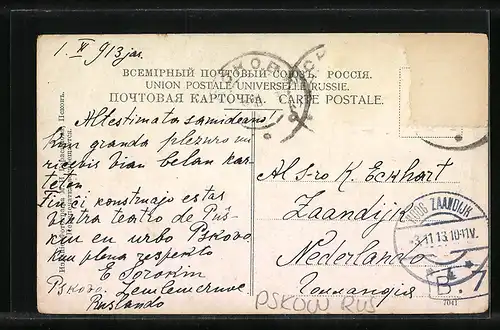 1. XI 913 jar.
ВСЕМІРНЫЙ ПОЧТОВЫЙ СОЮЗЪ. РОССІЯ.
UNION POSTALE UNIVERSELLE RUSSIE.
ПОЧТОВАЯ КАРТОЧКА. CARTE POSTALE.
Altestimata samideano
kun granda plezuro mi
ricevis Vian belan kar-
teton
Tiu ĉi konstruaĵo estas
teatro de Puŝ-
kin en urbo Pskovo.
Kun plena respekto
E
Pskovo.
Ruslando
Al s-ro K. Eckhart
Zaandijk
Nederlando
Голландія
KOOG ZAANDIJK
3.11.13.10-11V.
B. 7
7041
PSKOW RUS